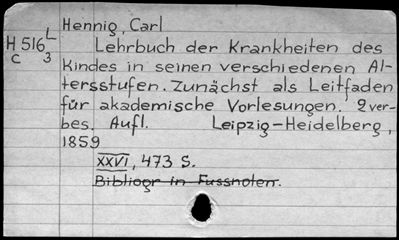 Hennig, Carl
H 516 L
c 3
Lehrbuch der Krankheiten des
Kindes in seinen verschiedenen Al-
tersstufen. Zunächst als Leitfaden
für akademische Vorlesungen. 2 ver-
bes. Aufl. Leipzig-Heidelberg,
1859
XXVI, 473 S.
Bibliogr in Fussnoten.